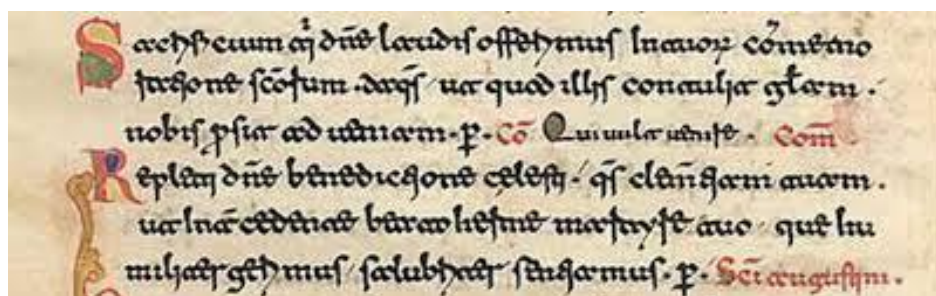 Sacrificium q̄ dn̄e laudis offerimus In tuoꝝ cōmemo
ratione scōrum. da qs̄ ut quod illis contulit glām.
nobis p̄sit ad ueniam. p̄. Cō Qui uult uenire. Com̄
Repleti dn̄e benedictione celesti. qs̄ clem̄tiam tuam.
ut Int̄cedente beato herme martyre tuo. que hu
militer gerimus. salubriter sentiamus. p̄. Sc̄i augustini.